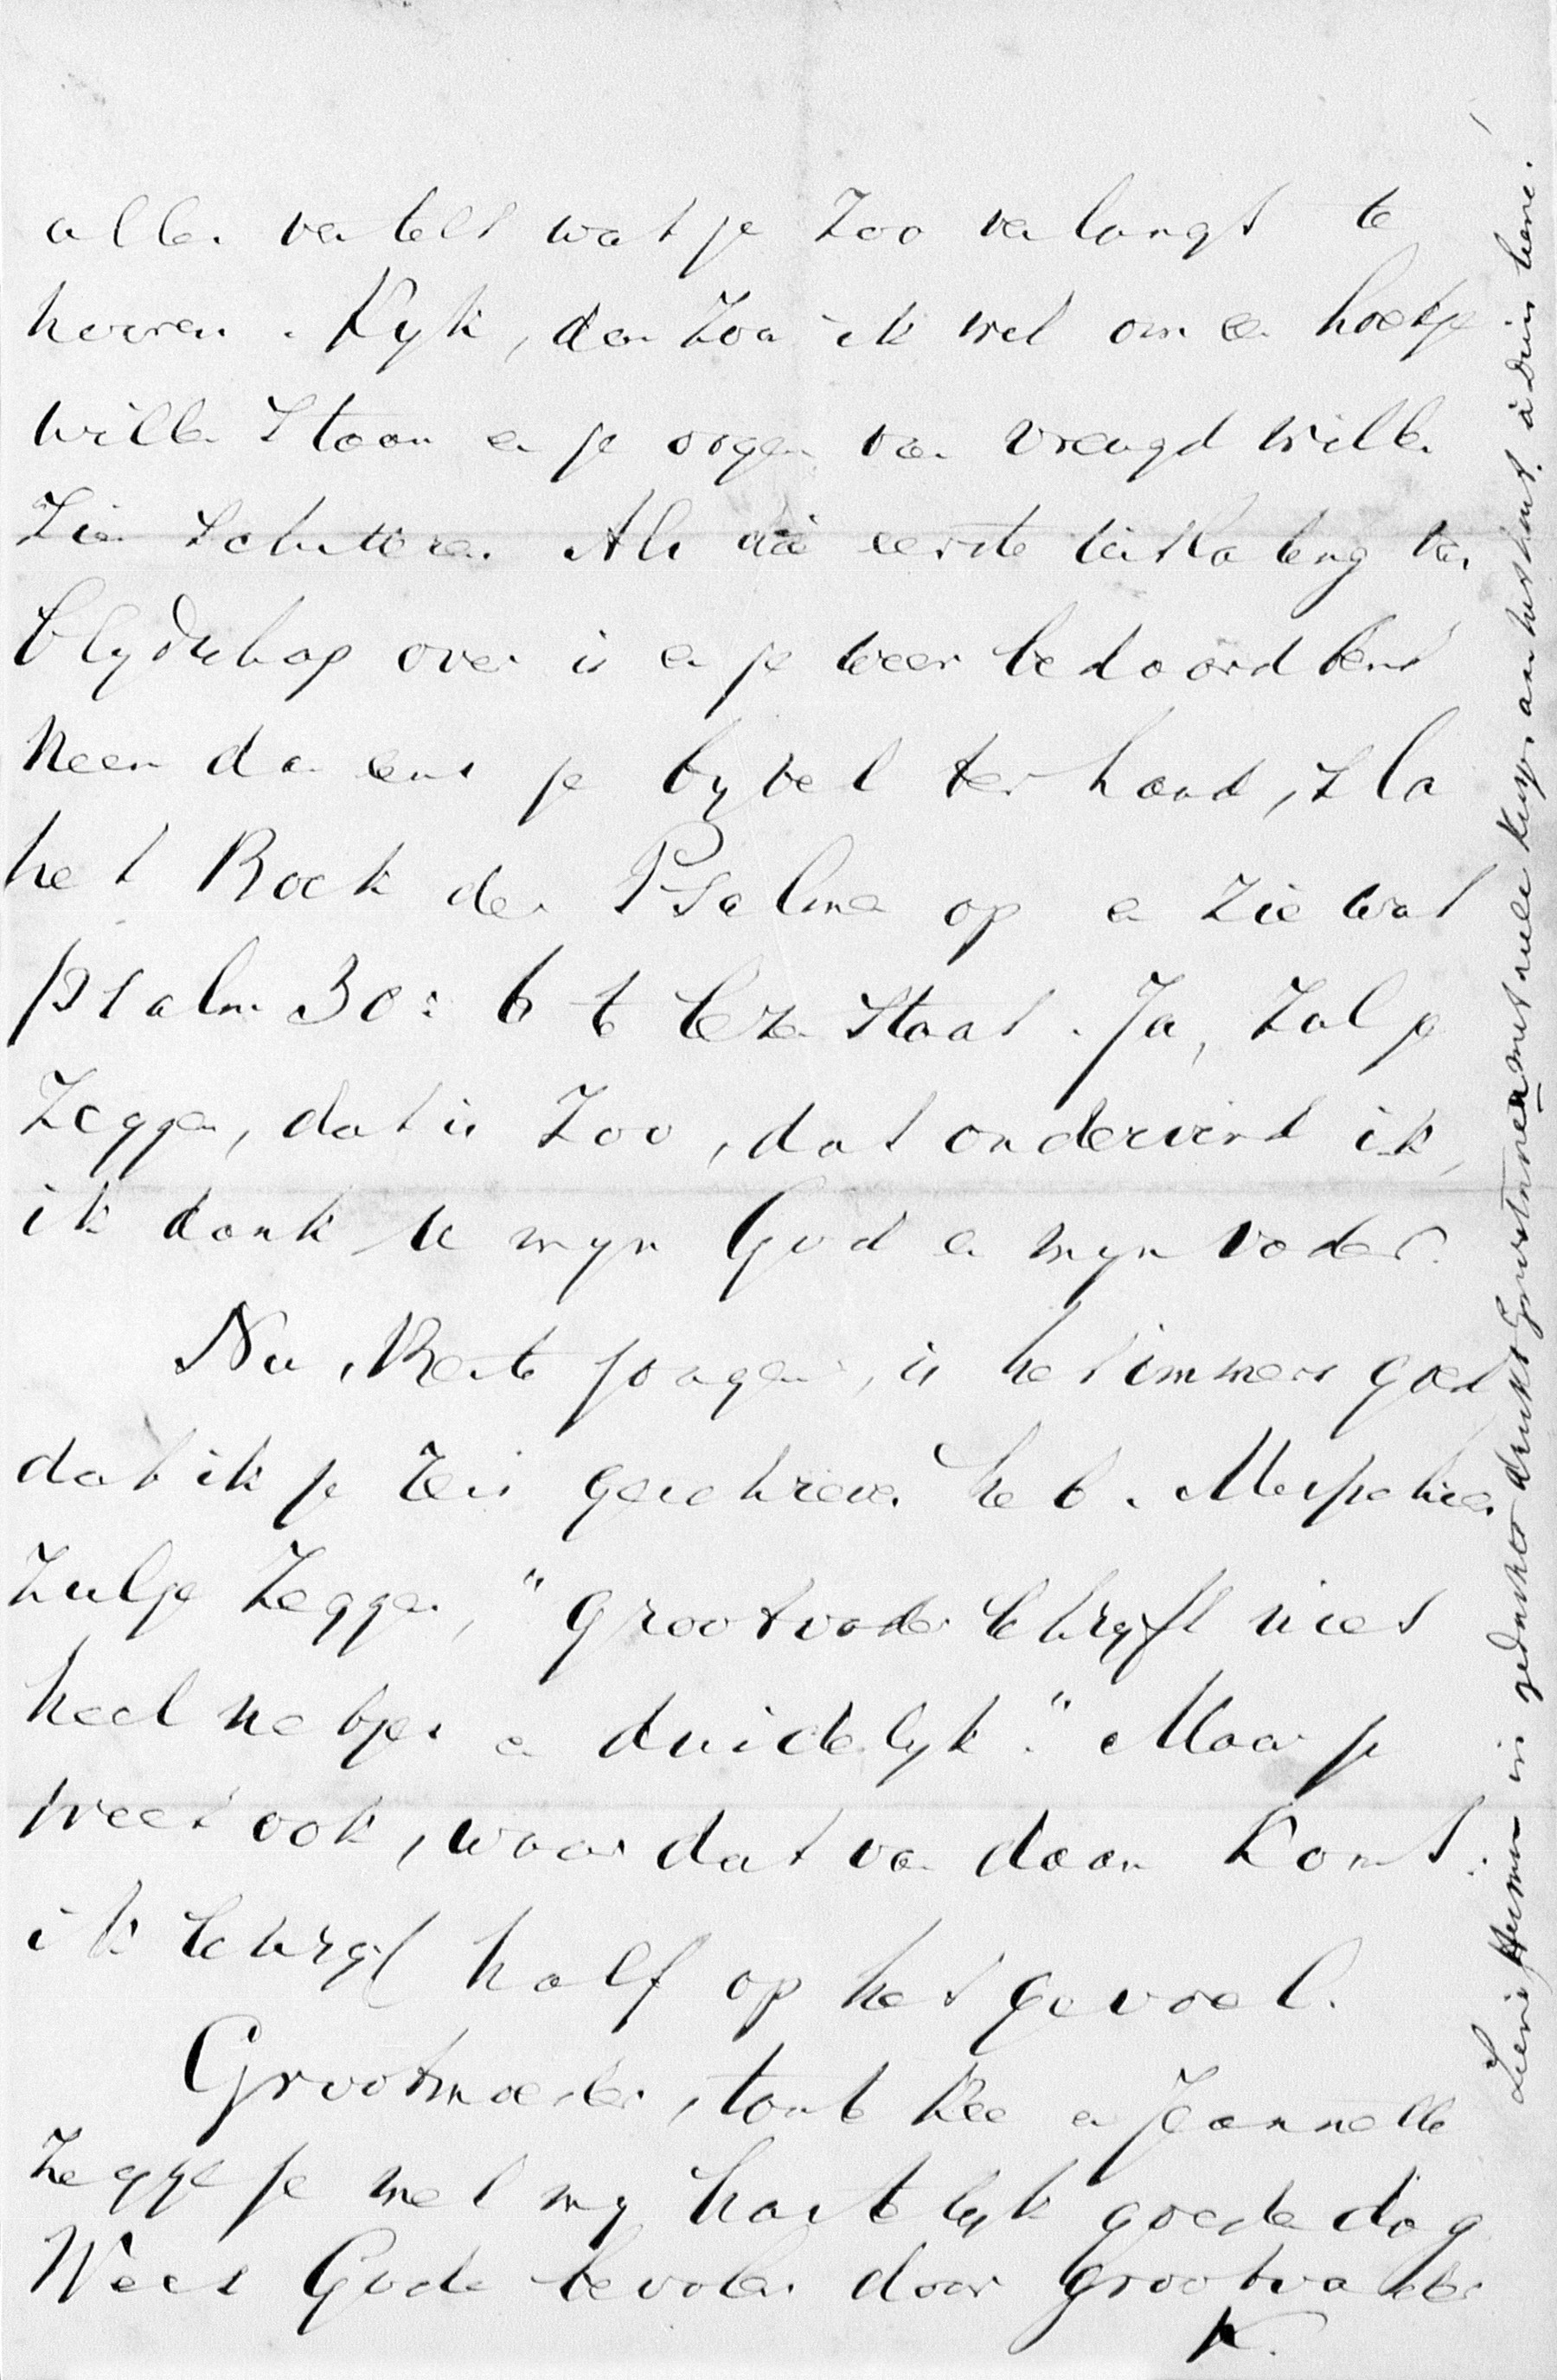 alles vertelt wat je zoo verlangt te
hooren. Kyk, dan zou ik wel om een hoekje
willen staan en je oogen van vreugd willen
zien schitteren. Als die eerste uitlating van
blydschap over is en je weer bedaard bent
neem dan eens je bybel ter hand, sla
het Boek der Psalmen op en zie wat
psalm 30: 6 te lezen staat. Ja, zul je
zeggen, dat is zoo, dat ondervind ik,
ik dank U myn God en myn vader.
Nu, beste jongen, is het immers goed
dat ik je eens geschreven heb. Misschien
zul je zeggen, "grootvader schryft niet
heel netjes en duidelyk." Maar je
weet ook, waar dat van daan komt:
ik schryf half op het gevoel.
Grootmoeder, tante Kee en Jeannette
zeggen je met my hartelyk goeden dag
Wees Gode bevolen door Grootvader
K.
Lieve Herman in gedachten drukt Grootmama met een kusje aan het hart